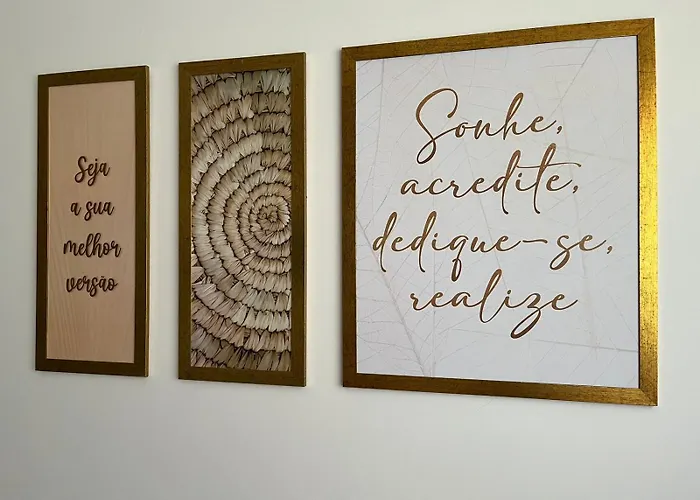 Seja
a sua
melhor
versão
Sonhe,
acredite,
dedique-se,
realize